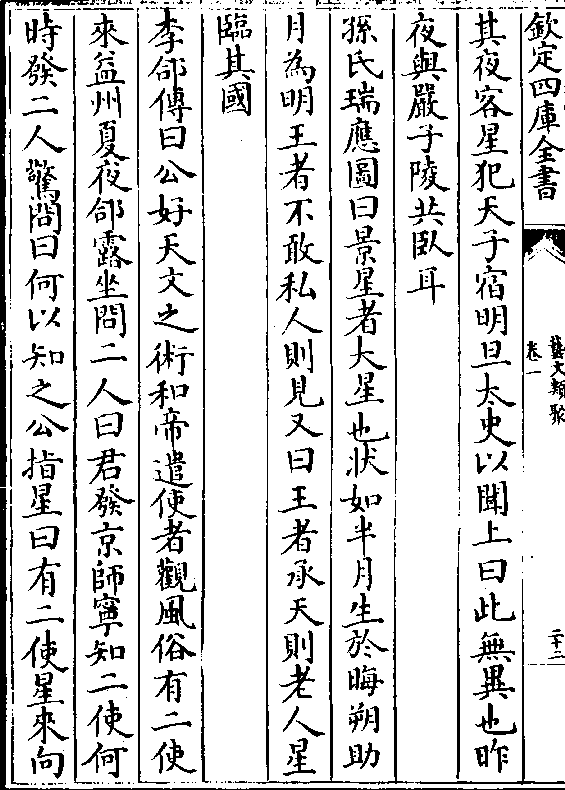 欽定四庫全書
藝文類聚
卷一
二十二
其夜客星犯天子宿明旦太史以聞上曰此無異也昨
夜與嚴子陵共臥耳
孫氏瑞應圖曰景星者大星也狀如半月生於晦朔助
月為明王者不敢私人則見又曰王者承天則老人星
臨其國
李郃傳曰公好天文之術和帝遣使者觀風俗有二使
來益州夏夜郃露坐問二人曰君發京師寧知二使何
時發二人驚問曰何以知之公指星曰有二使星來向